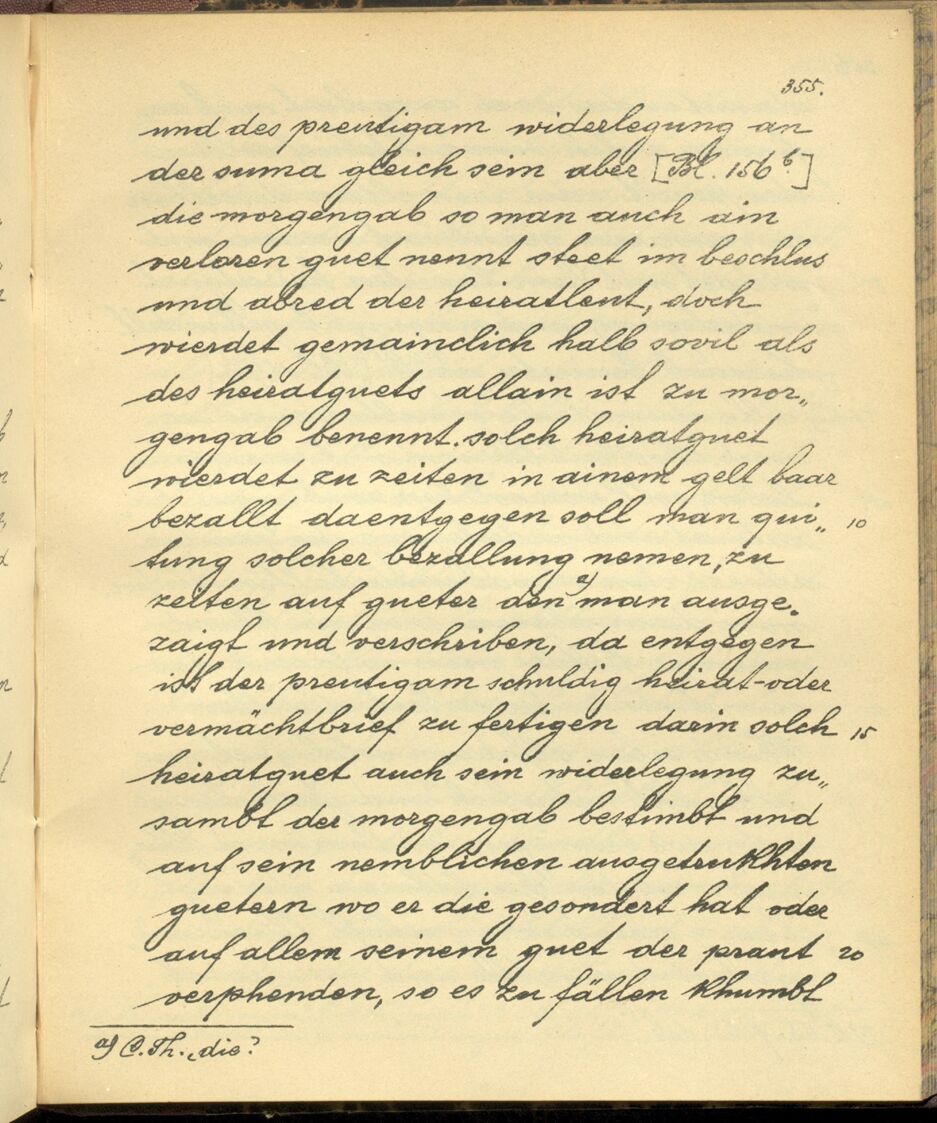 355.
und des preutigam widerlegung an
der suma gleich sein aber [Bl. 156b.]
die morgengab so man auch ain
verloren guet nennt steet im beschlus
und abred der heiratleut, doch
wierdet gemainclich halb sovil als
des heiratguets allain ist zu mor„
gengab benennt. solch heiratguet
wierdet zu zeiten in ainem gelt baar
bezallt daentgegen soll man qui„ 10
tung solcher bezallung nemen, zu
zeiten auf gueter den a) man ausge„
zaigt und verschriben, da entgegen
ist der preutigam schuldig heirat-oder
vermächtbrief zu fertigen darin solch 15
heiratguet auch sein widerlegung zu„
sambt der morgengab bestimbt und
auf sein nemblichen ausgetrukhten
guetern wo er die gesondert hat oder
auf allem seinem guet der praut 20
verphenden, so es zu fällen khumbt
a) C. Th. „die?